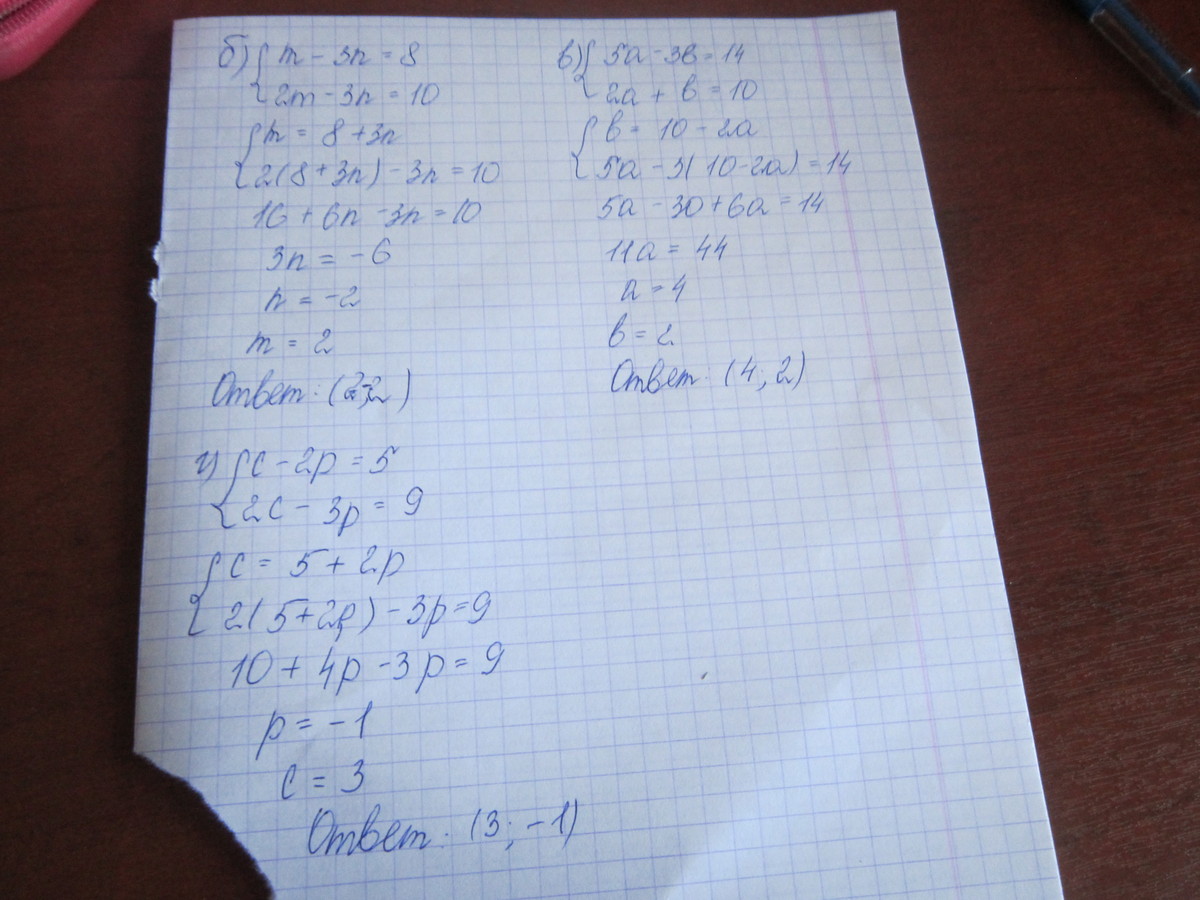 б) { m - 3n = 8
2m - 3n = 10
{ m = 8 + 3n
2(8 + 3n) - 3n = 10
16 + 6n - 3n = 10
3n = -6
n = -2
m = 2
Ответ: (2; -2)
в) { 5a - 3в = 14
2a + в = 10
{ в = 10 - 2a
5a - 3(10 - 2a) = 14
5a - 30 + 6a = 14
11a = 44
a = 4
в = 2
Ответ: (4; 2)
г) { c - 2p = 5
2c - 3p = 9
{ c = 5 + 2p
2(5 + 2p) - 3p = 9
10 + 4p - 3p = 9
p = -1
c = 3
Ответ: (3; -1)